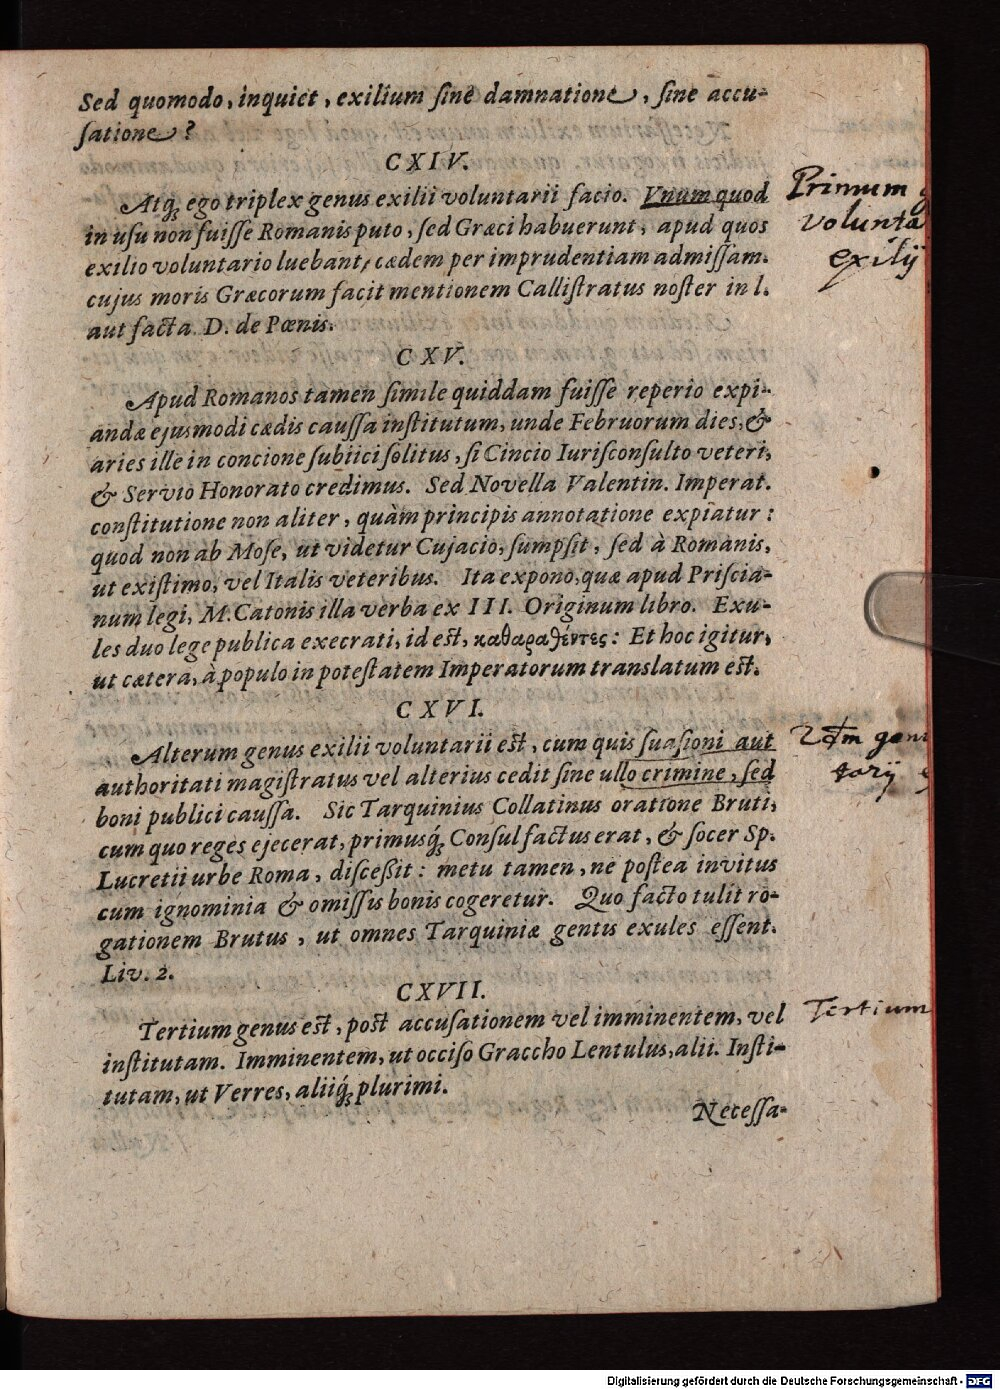 Sed quomodo, inquiet, exilium ſine damnatione, ſine accu-
ſatione?
CXIV.
Atq́; ego triplex genus exilii voluntarii facio. Vnum quod
in uſu non fuiſſe Romanis puto, ſed Græci habuerunt, apud quos
exilio voluntario luebant, cædem per imprudentiam admiſſam.
cujus moris Græcorum facit mentionem Calliſtratus noſter in l.
aut facta D. de Pœnis.
Primum
volunta
exilij
CXV.
Apud Romanos tamen ſimile quiddam fuiſſe reperio expi-
andæ ejusmodi cædis cauſſa inſtitutum, unde Februorum dies, &
aries ille in concione ſubiici ſolitus, ſi Cincio Iuriſconſulto veteri,
& Servio Honorato credimus. Sed Novella Valentin. Imperat.
conſtitutione non aliter, quàm principis annotatione expiatur:
quod non ab Moſe, ut videtur Cujacio, ſumpſit, ſed à Romanis,
ut exiſtimo, vel Italis veteribus. Ita expono, quæ apud Priſcia-
num legi, M. Catonis illa verba ex III. Originum libro. Exu-
les duo lege publica execrati, id eſt, καθαραθέντες: Et hoc igitur,
ut cætera, à populo in poteſtatem Imperatorum translatum eſt.
CXVI.
Alterum genus exilii voluntarii eſt, cum quis ſuaſioni aut
authoritati magiſtratus vel alterius cedit ſine ullo crimine, ſed
boni publici cauſſa. Sic Tarquinius Collatinus oratione Bruti,
cum quo reges ejecerat, primusq́; Conſul factus erat, & ſocer Sp.
Lucretii urbe Roma, diſceßit: metu tamen, ne poſtea invitus
cum ignominia & omiſſis bonis cogeretur. Quo facto tulit ro-
gationem Brutus, ut omnes Tarquiniæ gentis exules eſſent.
Liv. 2.
tarij
CXVII.
Tertium genus eſt, poſt accuſationem vel imminentem, vel
inſtitutam. Imminentem, ut occiſo Graccho Lentulus, alii. Inſti-
tutam, ut Verres, aliiq́; plurimi.
Tertium
Neceſſa-
Digitalisierung gefördert durch die Deutsche Forschungsgemeinschaft - DFG